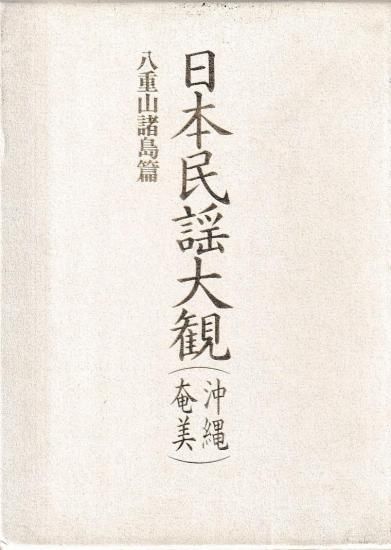 日本民謡大観(沖縄
奄美)
八重山諸島篇